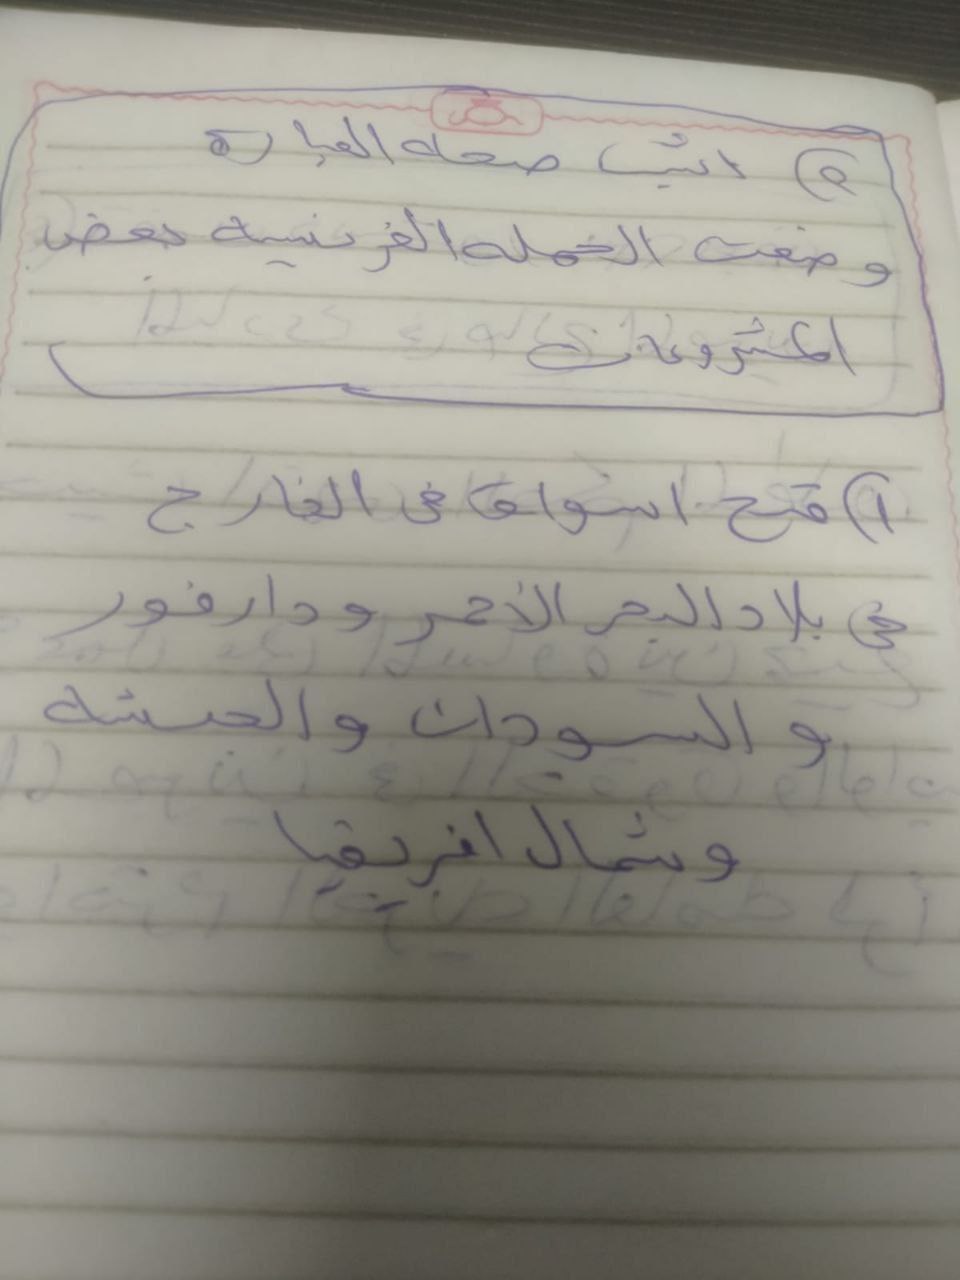 ٥) اثبت صحه العباره
وضعت الحمله الفرنسيه بعض
المشروعات
١) فتح اسواقا فى الخارج
فى بلاد البحر الأحمر ودارفور
و السودان والحبشه
وشمال افريقيا